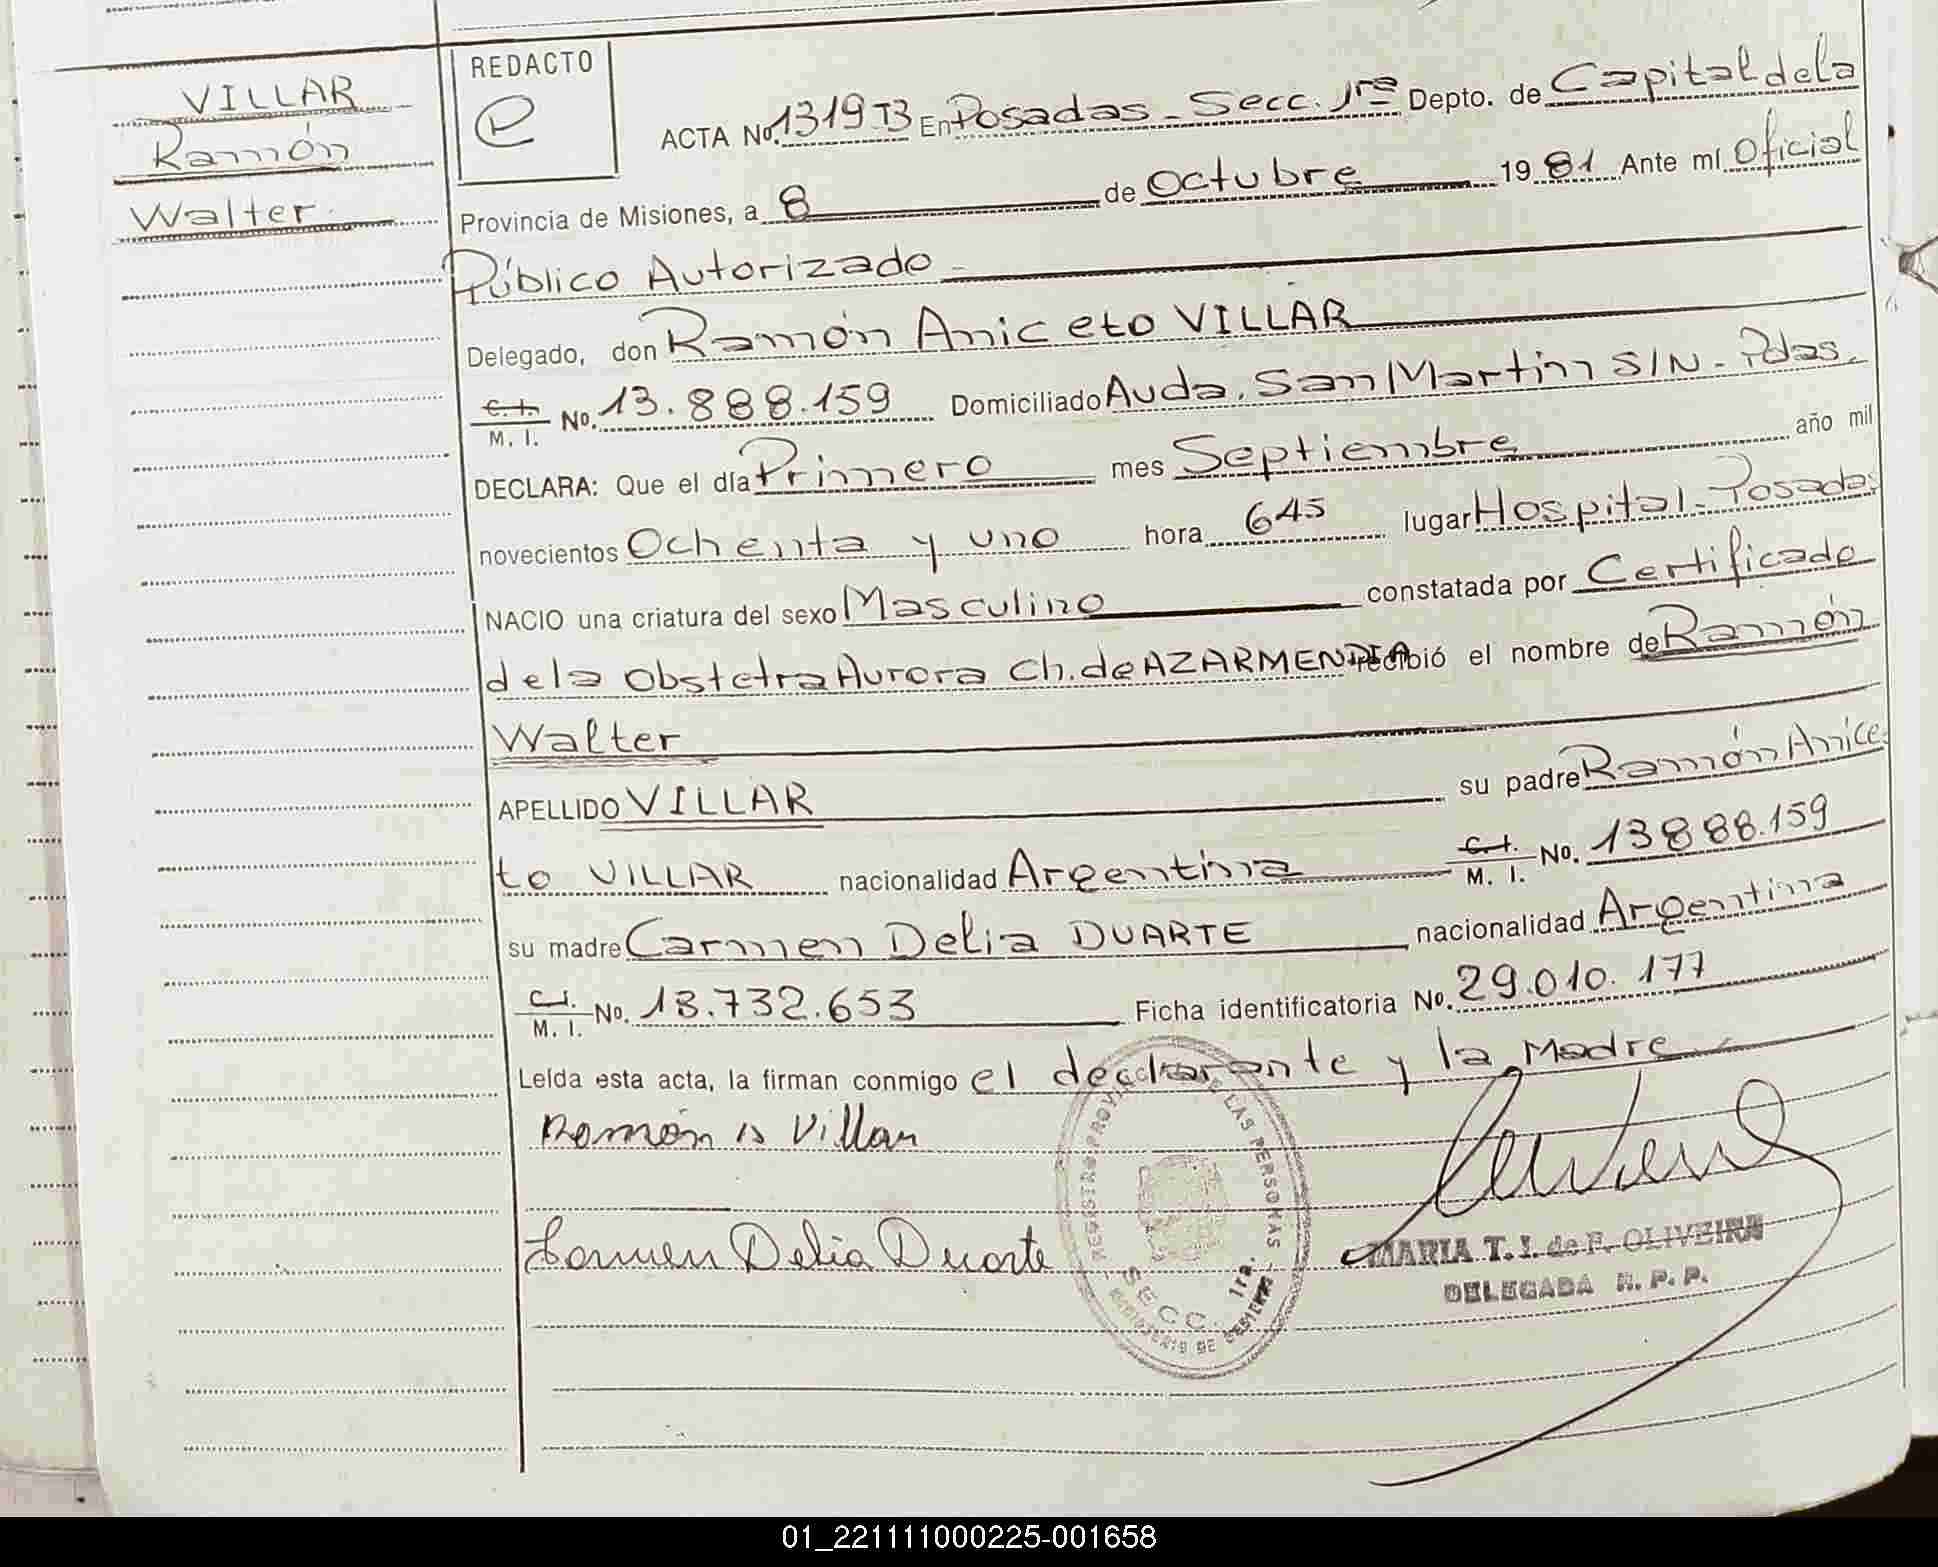 VILLAR
Ramón
Walter
REDACTO
e
ACTA No. 1319 T3 En Posadas - Secc. 1ra Depto. de Capital de la
Provincia de Misiones, a 8 de Octubre 1981 Ante mí Oficial
Público Autorizado -
Delegado, don Ramón Aniceto VILLAR
C. I. / M. I. No. 13.888.159 Domiciliado Avda. San Martin S/N - Pdas.
DECLARA: Que el día Primero mes Septiembre año mil
novecientos Ochenta y uno hora 645 lugar Hospital - Posadas
NACIO una criatura del sexo Masculino constatada por Certificado
de la Obstetra Aurora Ch. de AZARMENDIA recibió el nombre de Ramón
Walter
APELLIDO VILLAR su padre Ramón Anice
to VILLAR nacionalidad Argentina C. I. / M. I. No. 13888.159
su madre Carmen Delia DUARTE nacionalidad Argentina
C. I. / M. I. No. 13.732.653 Ficha identificatoria No. 29.010.177
Leída esta acta, la firman conmigo el declarante y la Madre
Ramón A Villar
Carmen Delia Duarte
REGISTRO PROV. DE LAS PERSONAS
SECC. 1ra.
MARIA T. I. de F. OLIVEIRA
DELEGADA R. P. P.
01_221111000225-001658